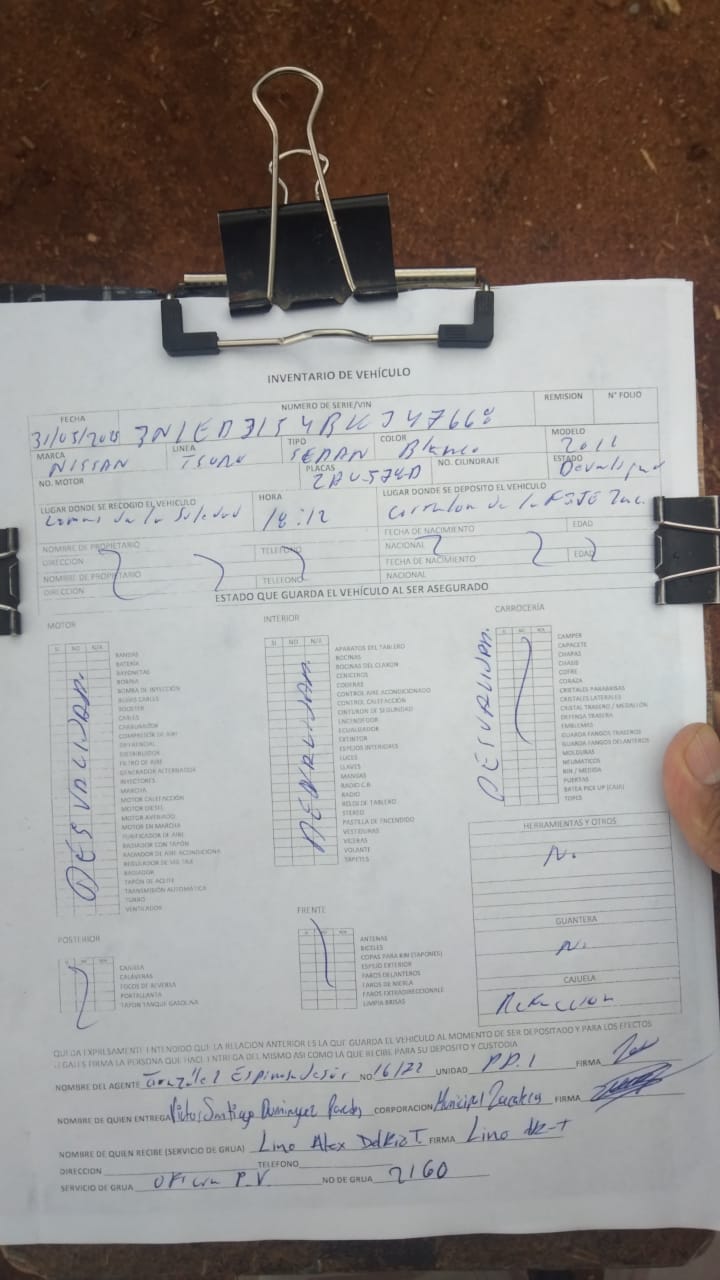 INVENTARIO DE VEHÍCULO
FECHA NUMERO DE SERIE/VIN REMISION N° FOLIO
MARCA NISSAN LINEA TSURU TIPO SEDAN COLOR Blanco MODELO 2011
NO. MOTOR PLACAS NO. CILINDRAJE ESTADO
LUGAR DONDE SE RECOGIO EL VEHICULO HORA LUGAR DONDE SE DEPOSITO EL VEHICULO
Lomas de la Soledad 18:12 Corralon de la
NOMBRE DE PROPIETARIO TELEFONO FECHA DE NACIMIENTO EDAD
DIRECCION NACIONAL
NOMBRE DE PROPIETARIO TELEFONO FECHA DE NACIMIENTO EDAD
DIRECCION NACIONAL
ESTADO QUE GUARDA EL VEHÍCULO AL SER ASEGURADO
MOTOR
SI NO N/A
BANDAS
BATERÍA
BAYONETAS
BOBINA
BOMBA DE INYECCIÓN
BUJIAS CABLES
BOOSTER
CABLES
CARBURADOR
COMPRESOR DE AIRE
DIFERENCIAL
DISTRIBUIDOR
FILTRO DE AIRE
GENERADOR ALTERNADOR
INYECTORES
MARCHA
MOTOR CALEFACCIÓN
MOTOR DIESEL
MOTOR AVERIADO
MOTOR EN MARCHA
PURIFICADOR DE AIRE
RADIADOR CON TAPÓN
RADIADOR DE AIRE ACONDICIONA
REGULADOR DE VOLTAJE
RADIADOR
TAPÓN DE ACEITE
TRANSMISIÓN AUTOMATICA
TURBO
VENTILADOR
DESVALIJAM.
INTERIOR
SI NO N/A
APARATOS DEL TABLERO
BOCINAS
BOCINAS DEL CLAXON
CENICEROS
CODERAS
CONTROL AIRE ACONDICIONADO
CONTROL CALEFACCIÓN
CINTURON DE SEGURIDAD
ENCENDEDOR
ECUALIZADOR
EXTINTOR
ESPEJOS INTERIORES
LUCES
LLAVES
MANIJAS
RADIO C.B
RADIO
RELOJ DE TABLERO
STEREO
PASTILLA DE ENCENDIDO
VESTIDURAS
VICERAS
VOLANTE
TAPETES
DESVALIJAM.
CARROCERÍA
CAMPER
CAPACETE
CHAPAS
CHASIS
COFRE
CORAZA
CRISTALES PARABRISAS
CRISTALES LATERALES
CRISTAL TRASERO / MEDALLÓN
DEFENSA TRASERA
EMBLEMAS
GUARDA FANGOS TRASEROS
GUARDA FANGOS DELANTEROS
MOLDURAS
NEUMATICOS
RIN / MEDIDA
PUERTAS
BATEA PICK UP (CAJA)
TOPES
DESVALIJAM.
HERRAMIENTAS Y OTROS
No.
GUANTERA
No.
CAJUELA
Refaccion
POSTERIOR
CAJUELA
CALAVERAS
FOCOS DE REVERSA
PORTALLANTA
TAPON TANQUE GASOLINA
FRENTE
ANTENAS
BICELES
COPAS PARA RIN (TAPONES)
ESPEJO EXTERIOR
FAROS DELANTEROS
FAROS DE NIEBLA
FAROS EXTRADIRECCIONALE
LIMPIA BRISAS
QUEDA EXPRESAMENTE ENTENDIDO QUE LA RELACION ANTERIOR ES LA QUE GUARDA EL VEHICULO AL MOMENTO DE SER DEPOSITADO Y PARA LOS EFECTOS
LEGALES FIRMA LA PERSONA QUE HACE ENTREGA DEL MISMO ASI COMO LA QUE RECIBE PARA SU DEPOSITO Y CUSTODIA
NOMBRE DEL AGENTE González Espinosa Jesús NO 16/22 UNIDAD P.D.I FIRMA
NOMBRE DE QUIEN ENTREGA Victor Santiago Dominguez CORPORACION Municipal FIRMA
NOMBRE DE QUIEN RECIBE (SERVICIO DE GRUA) Lino Alex Del Rio T. FIRMA Lino
DIRECCION TELEFONO
SERVICIO DE GRUA Oficial P.V. NO DE GRUA 2160